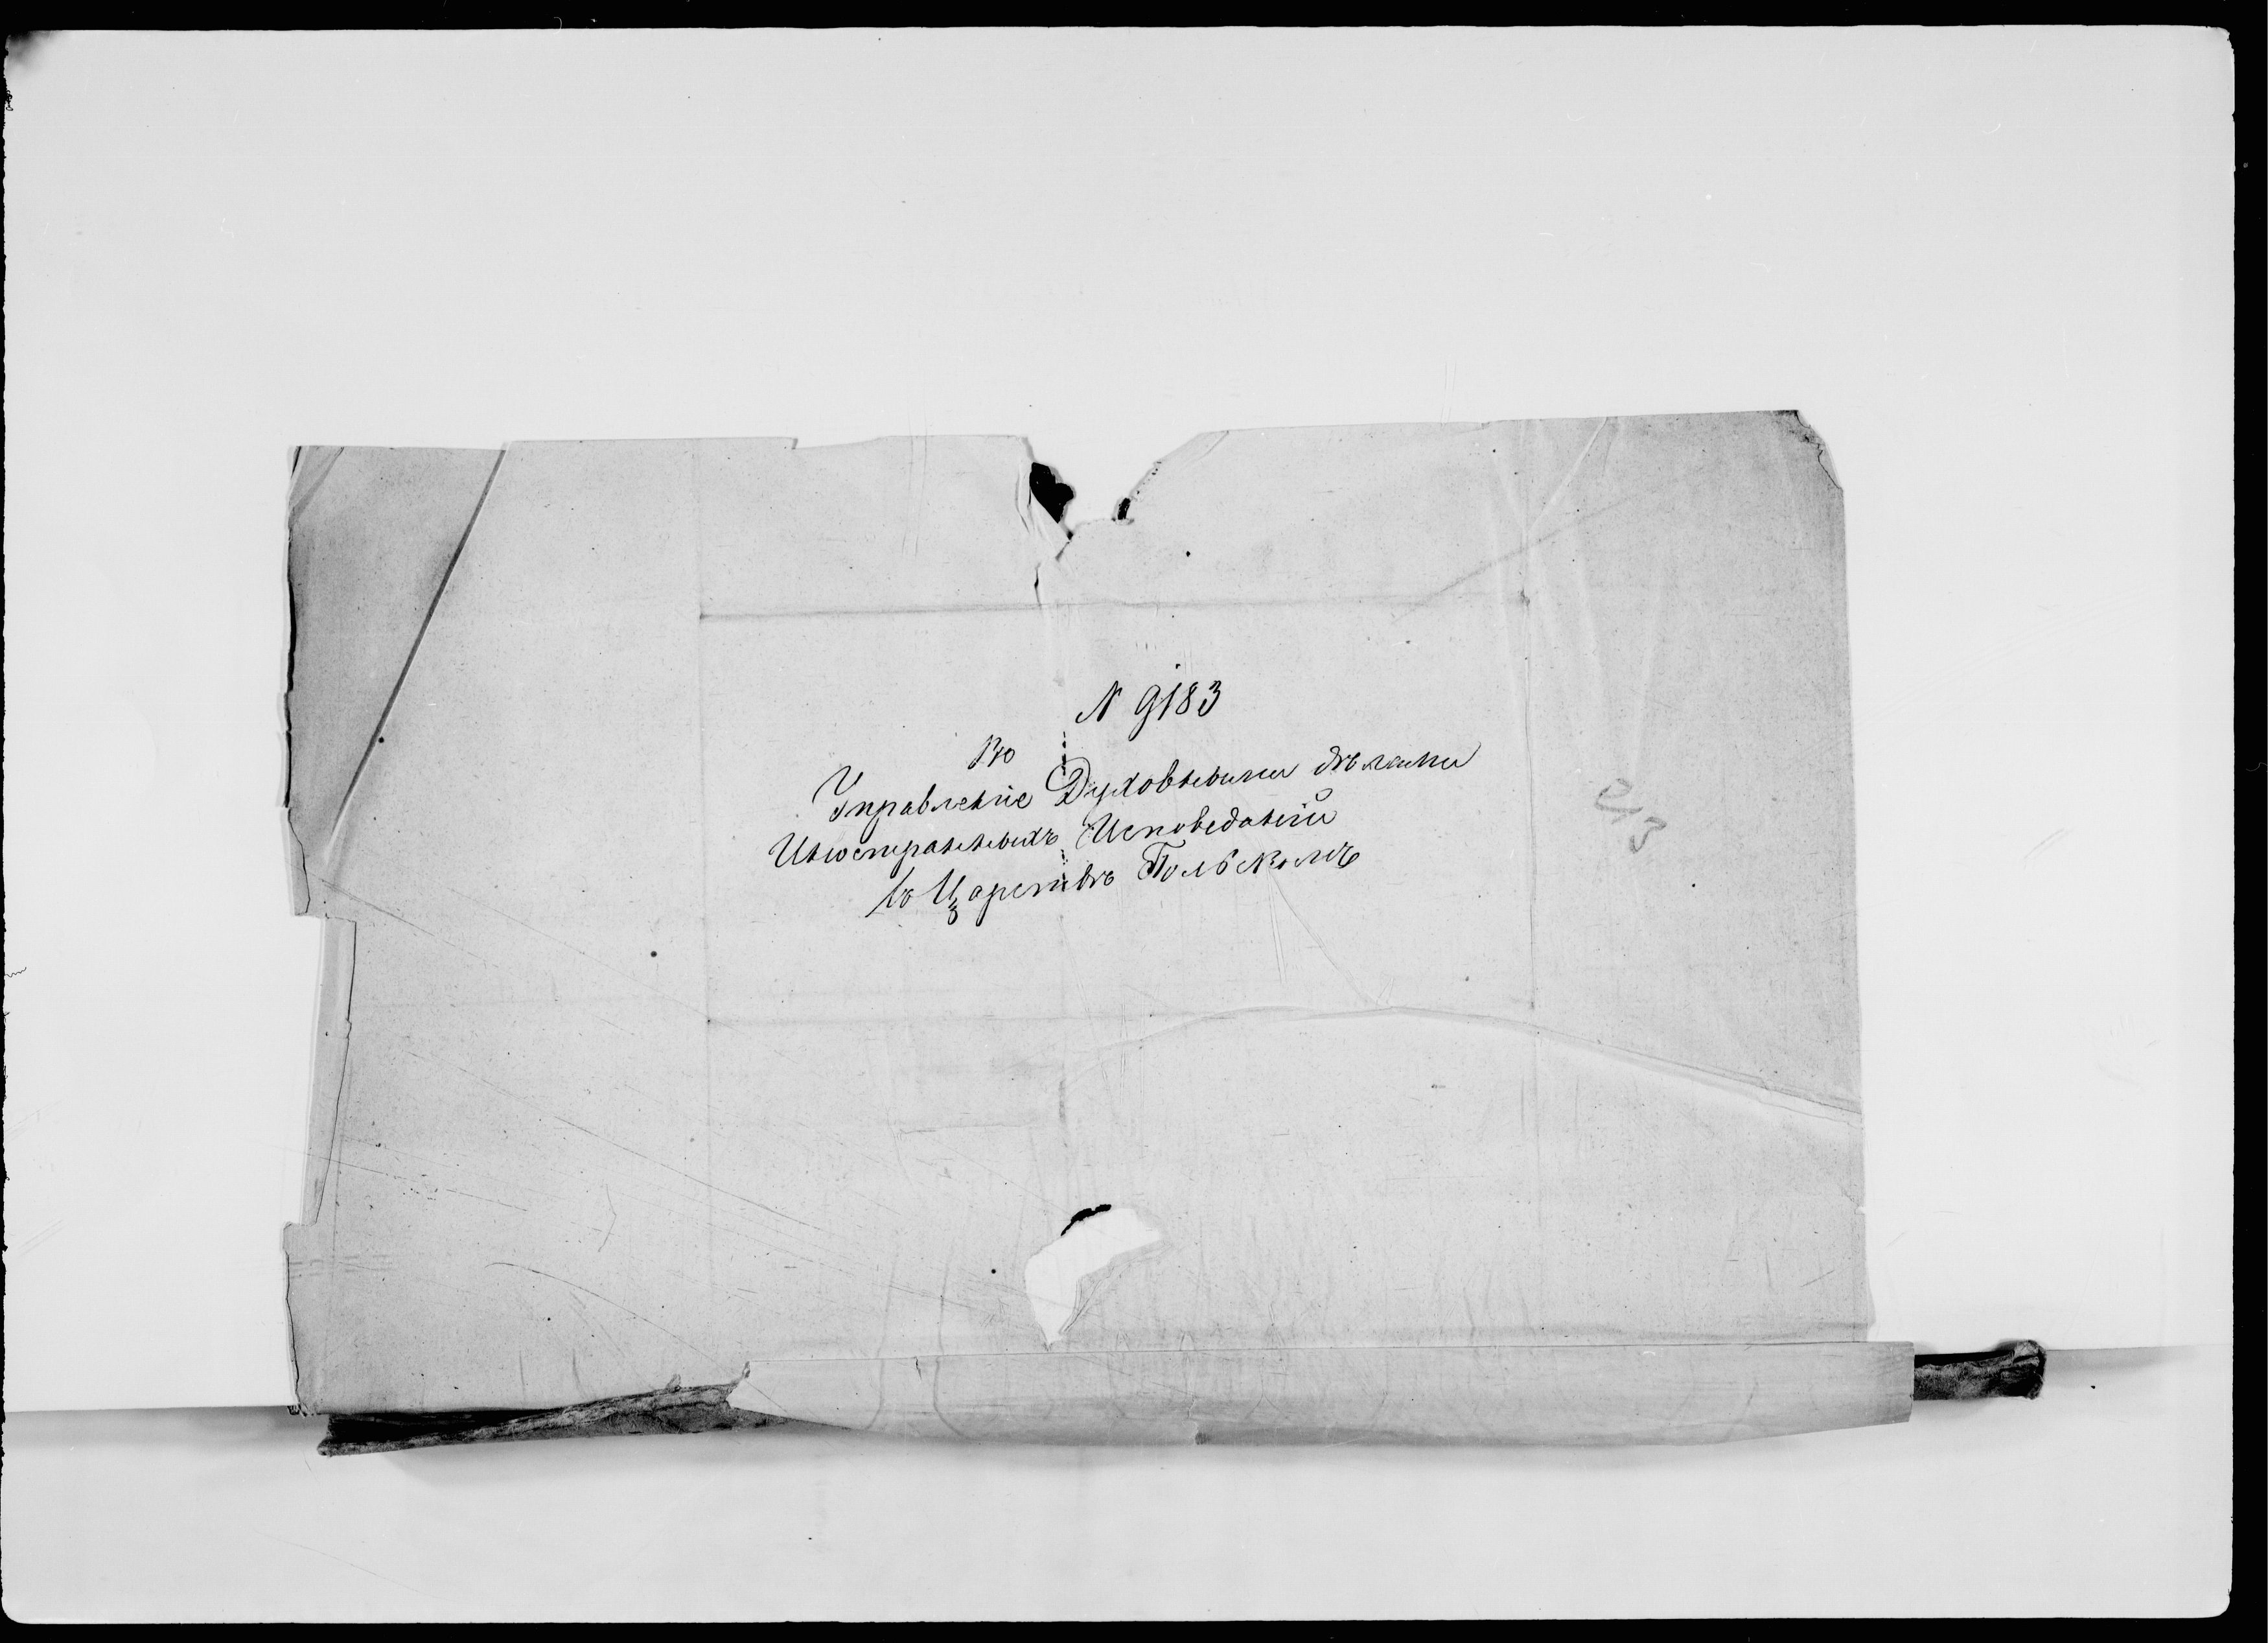 N 9183
Во
Управленіе Духовными дѣлами
Иностранныхъ Исповеданій
въ Царствѣ Польскомъ
213